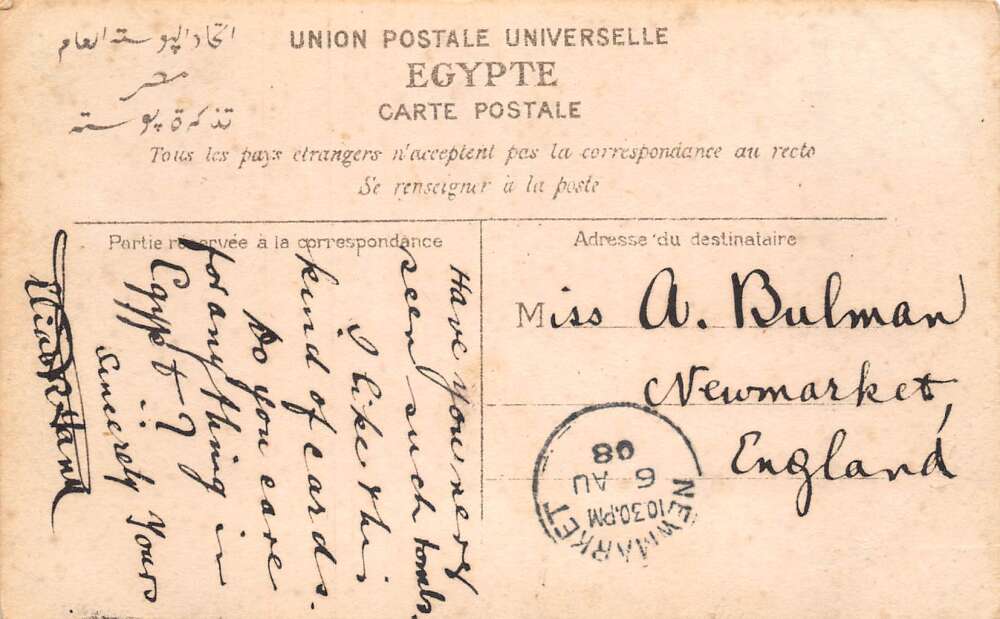 اتحاد البوسته العام
مصر
تذكرة بوسته
UNION POSTALE UNIVERSELLE
EGYPTE
CARTE POSTALE
Tous les pays étrangers n'acceptent pas la correspondance au recto
Se renseigner à la poste
Partie réservée à la correspondance
Have you ners
seen such tombs.
I like this
kind of cards.
Do you care
for anything in
Egypt?
Sincerely Yours
Adresse du destinataire
Miss A. Bulman
Newmarket,
England
NEWMARKET
10.30.PM
6 AU
08